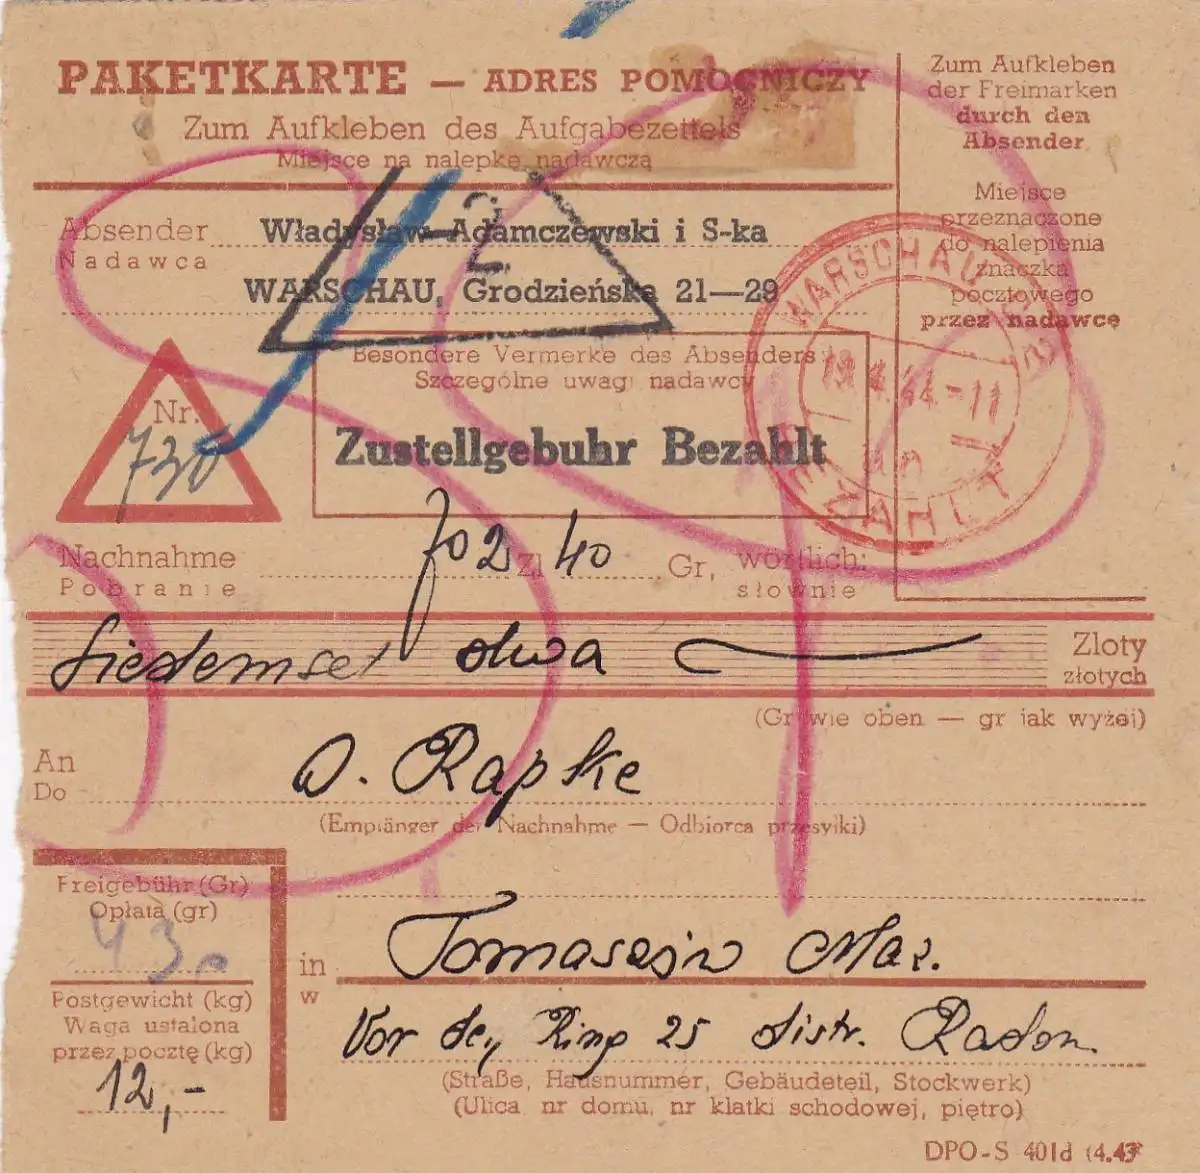 PAKETKARTE — ADRES POMOCNICZY
Zum Aufkleben des Aufgabezettels
Miejsce na nalepkę nadawczą
Zum Aufkleben
der Freimarken
durch den
Absender
Miejsce
przeznaczone
do nalepienia
znaczka
pocztowego
przez nadawcę
Absender Władysław Adamczewski i S-ka
Nadawca
WARSCHAU, Grodzieńska 21—29
2
WARSCHAU C2
19.4.44.-11
BEZAHLT
Besondere Vermerke des Absenders:
Szczególne uwagi nadawcy
Zustellgebuhr Bezahlt
Nr.
730
Nachnahme 702 Zl 40 Gr, wörtlich:
Pobranie słownie
Siedemset dwa Zloty
złotych
(Gr wie oben — gr jak wyżej)
An O. Rapke
Do
(Empfänger der Nachnahme — Odbiorca przesyłki)
Freigebühr (Gr)
Opłata (gr)
43.
in Tomaszów Maz.
w
Postgewicht (kg)
Waga ustalona
przez pocztę (kg)
12,-
Vor der Ring 25 distr. Radom.
(Straße, Hausnummer, Gebäudeteil, Stockwerk)
(Ulica nr domu, nr klatki schodowej, piętro)
DPO-S 401d (4.43)